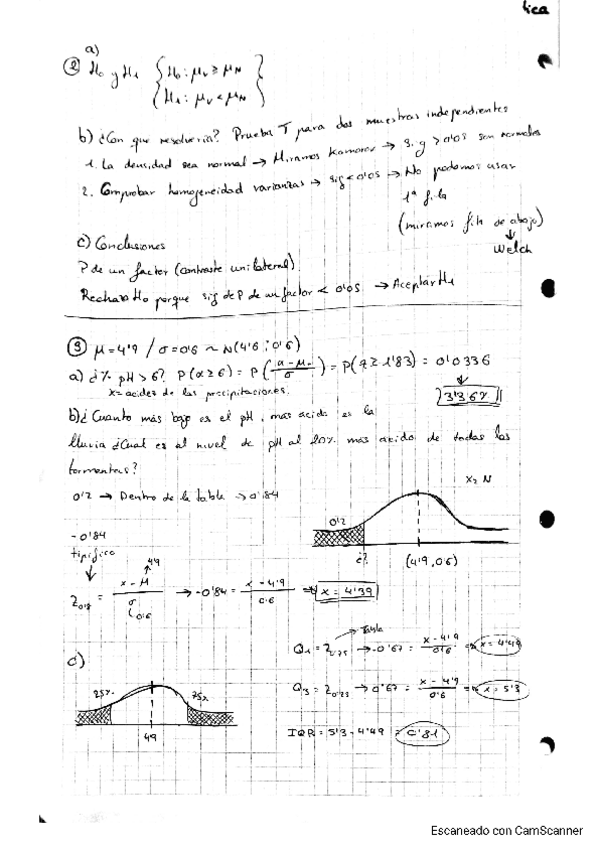 tica
a)
② H0 y H1 { H0: μV ≥ μN
H1: μV < μN }
b) ¿Con que resolveria? Prueba T para dos muestras independientes
1. La densidad sea normal → Miramos → sig > 0'05 sean normales
2. Comprobar homogeneidad varianzas → sig < 0'05 → No podemos usar
1ª fila
(miramos fila de abajo)
↓
Welch
c) Conclusiones
P de un factor (contraste unilateral)
Rechazo H0 porque sig de P de un factor < 0'05 → Aceptar H1
③ μ = 4'9 / σ = 0'6 ~ N(4'6; 0'6)
a) ¿% pH > 6? P(x ≥ 6) = P(x - μ / σ) = P(z ≥ 1'83) = 0'0336
x = acidez de las precipitaciones.
↓
3'36%
b) ¿Cuanto más bajo es el pH, mas acida es la
lluvia ¿Cual es el nivel de pH al 20% mas acido de todas las
tormentas?
0'2 → Dentro de la tabla → 0'84
x ~ N
0'2
-0'84
¿?
(4'9, 0'6)
tipifico
4'9
Z0'8 = x - μ / σ → -0'84 = x - 4'9 / 0'6 → x = 4'39
0'6
Tabla
c)
Q1 = Z0'75 → -0'67 = x - 4'9 / 0'6 → x = 4'49
25% 75%
Q3 = Z0'25 → 0'67 = x - 4'9 / 0'6 → x = 5'3
49
IQR = 5'3 - 4'49 = 0'81
Escaneado con CamScanner